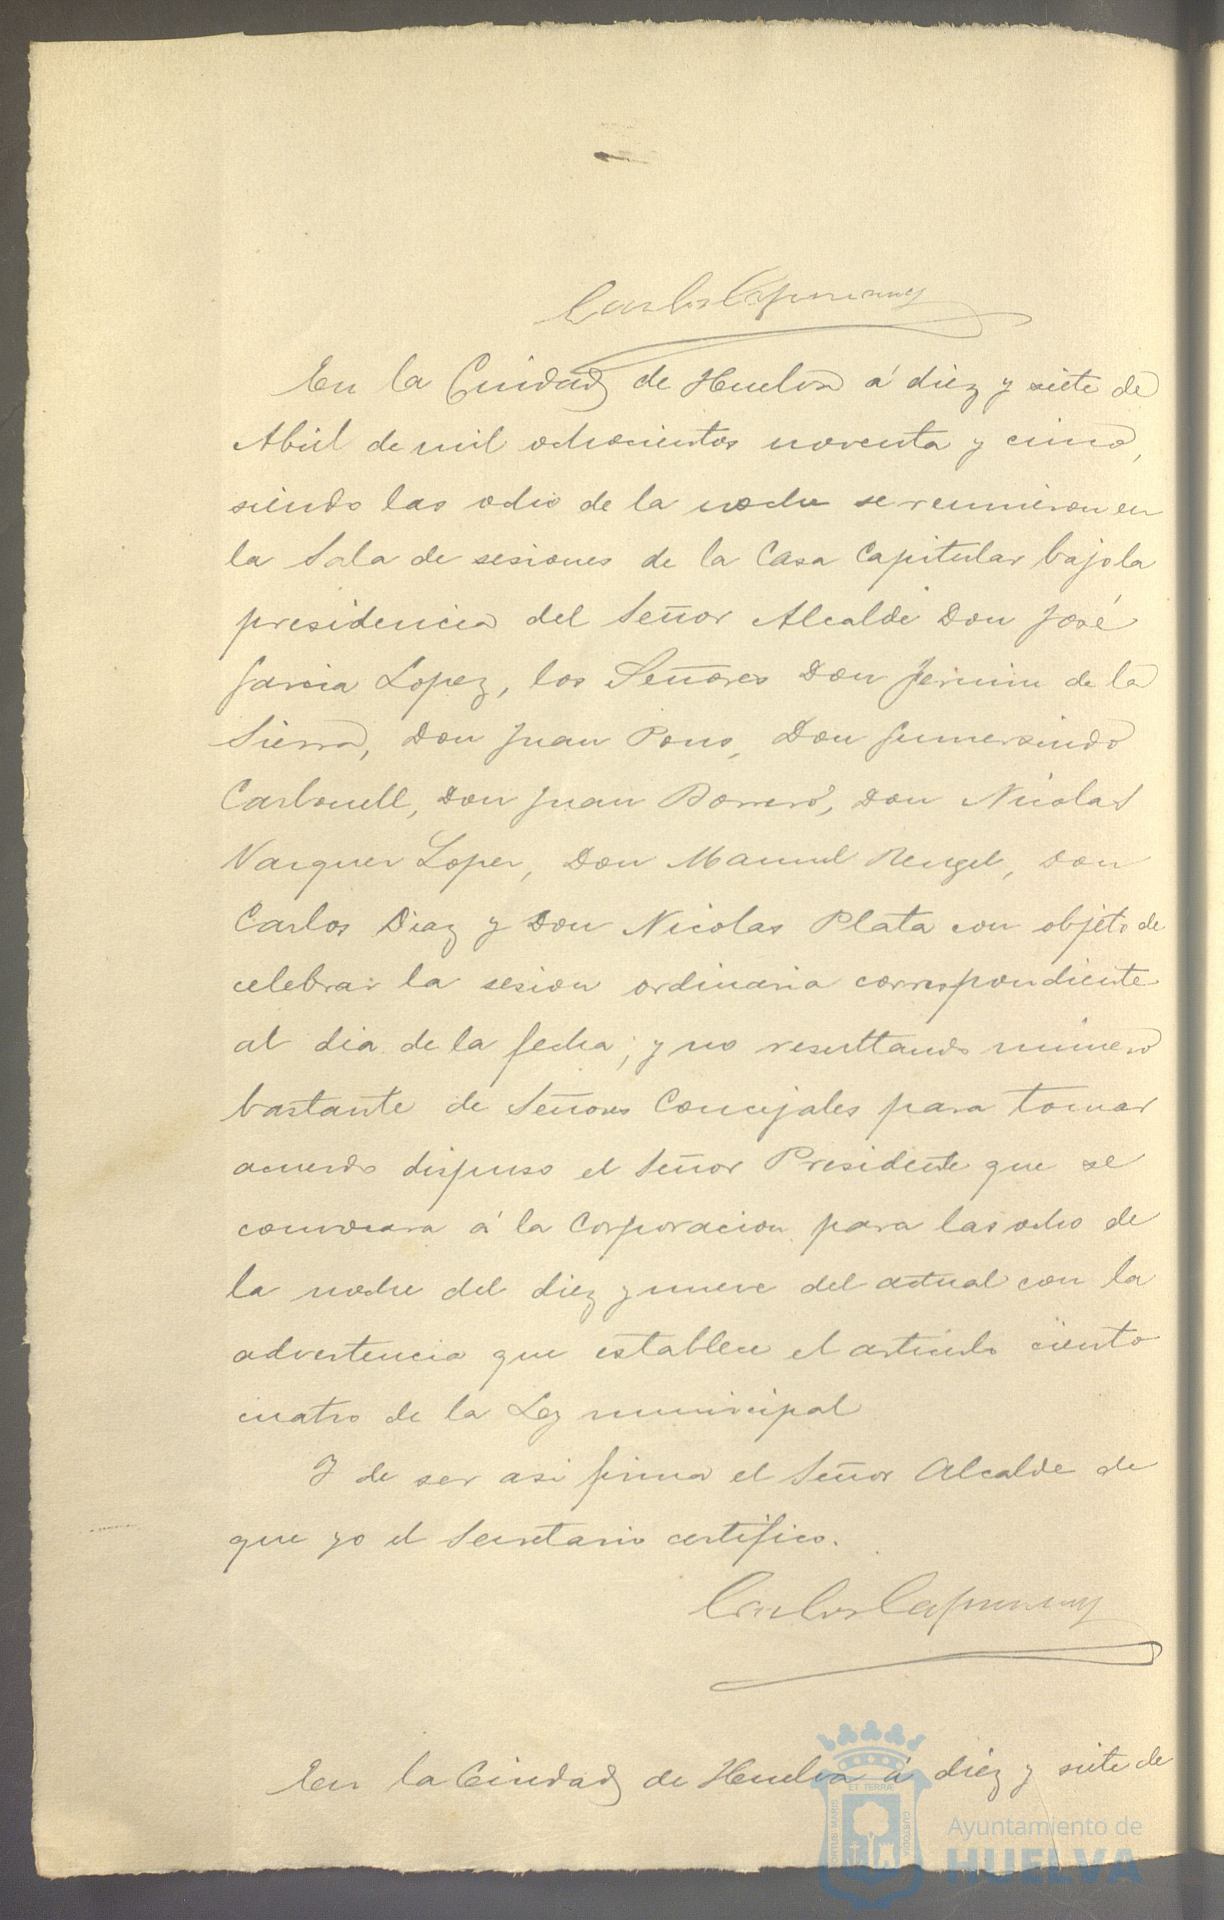 Carlos
En la Ciudad de Huelva á diez y siete de
Abril de mil ochocientos noventa y cinco,
siendo las ocho de la noche se reunieron en
la Sala de sesiones de la Casa Capitular bajo la
presidencia del Señor Alcalde Don José
Garcia Lopez, los Señores Don Fermin de la
Sierra, Don Juan Pons, Don Gumersindo
Carbonell, Don Juan Borrero, Don Nicolas
Vazquez Lopez, Don Manuel Rengel, Don
Carlos Diaz y Don Nicolas Plata con objeto de
celebrar la sesion ordinaria correspondiente
al dia de la fecha; y no resultando número
bastante de Señores Concejales para tomar
acuerdo dispuso el Señor Presidente que se
convocara á la Corporacion para las ocho de
la noche del diez y nueve del actual con la
advertencia que establece el articulo ciento
cuatro de la Ley municipal
Y de ser asi firma el Señor Alcalde de
que yo el Secretario certifico.
Carlos
En la Ciudad de Huelva á diez y siete de
ET TERRÆ
PORTUS MARIS
CUSTODIA
Ayuntamiento de
HUELVA